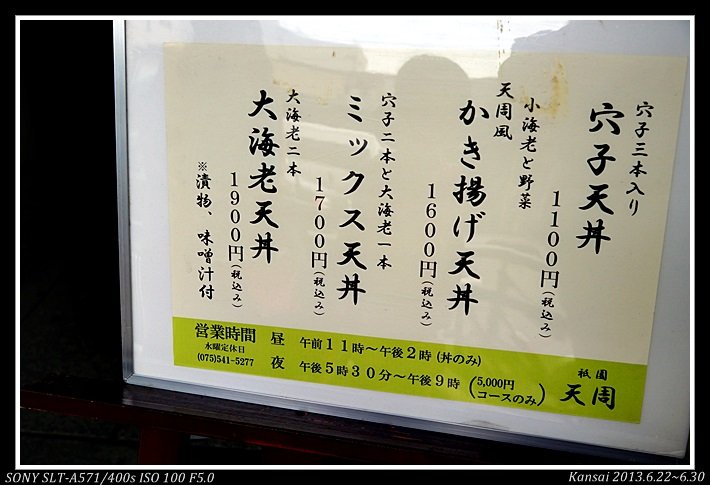 穴子三本入り
穴子天丼
1100円(税込み)
小海老と野菜
天周風
かき揚げ天丼
1600円(税込み)
穴子二本と大海老一本
ミックス天丼
1700円(税込み)
大海老二本
大海老天丼
1900円(税込み)
※漬物、味噌汁付
営業時間
水曜定休日
(075)541-5277
昼 午前11時〜午後2時(丼のみ)
夜 午後5時30分〜午後9時(5,000円コースのみ)
祇園
天周
SONY SLT-A571/400s ISO 100 F5.0
Kansai 2013.6.22~6.30